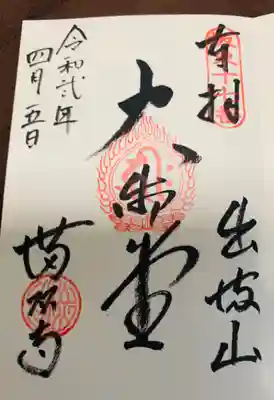 奉拝
出流山
大御堂
満願寺
令和弐年
四月五日